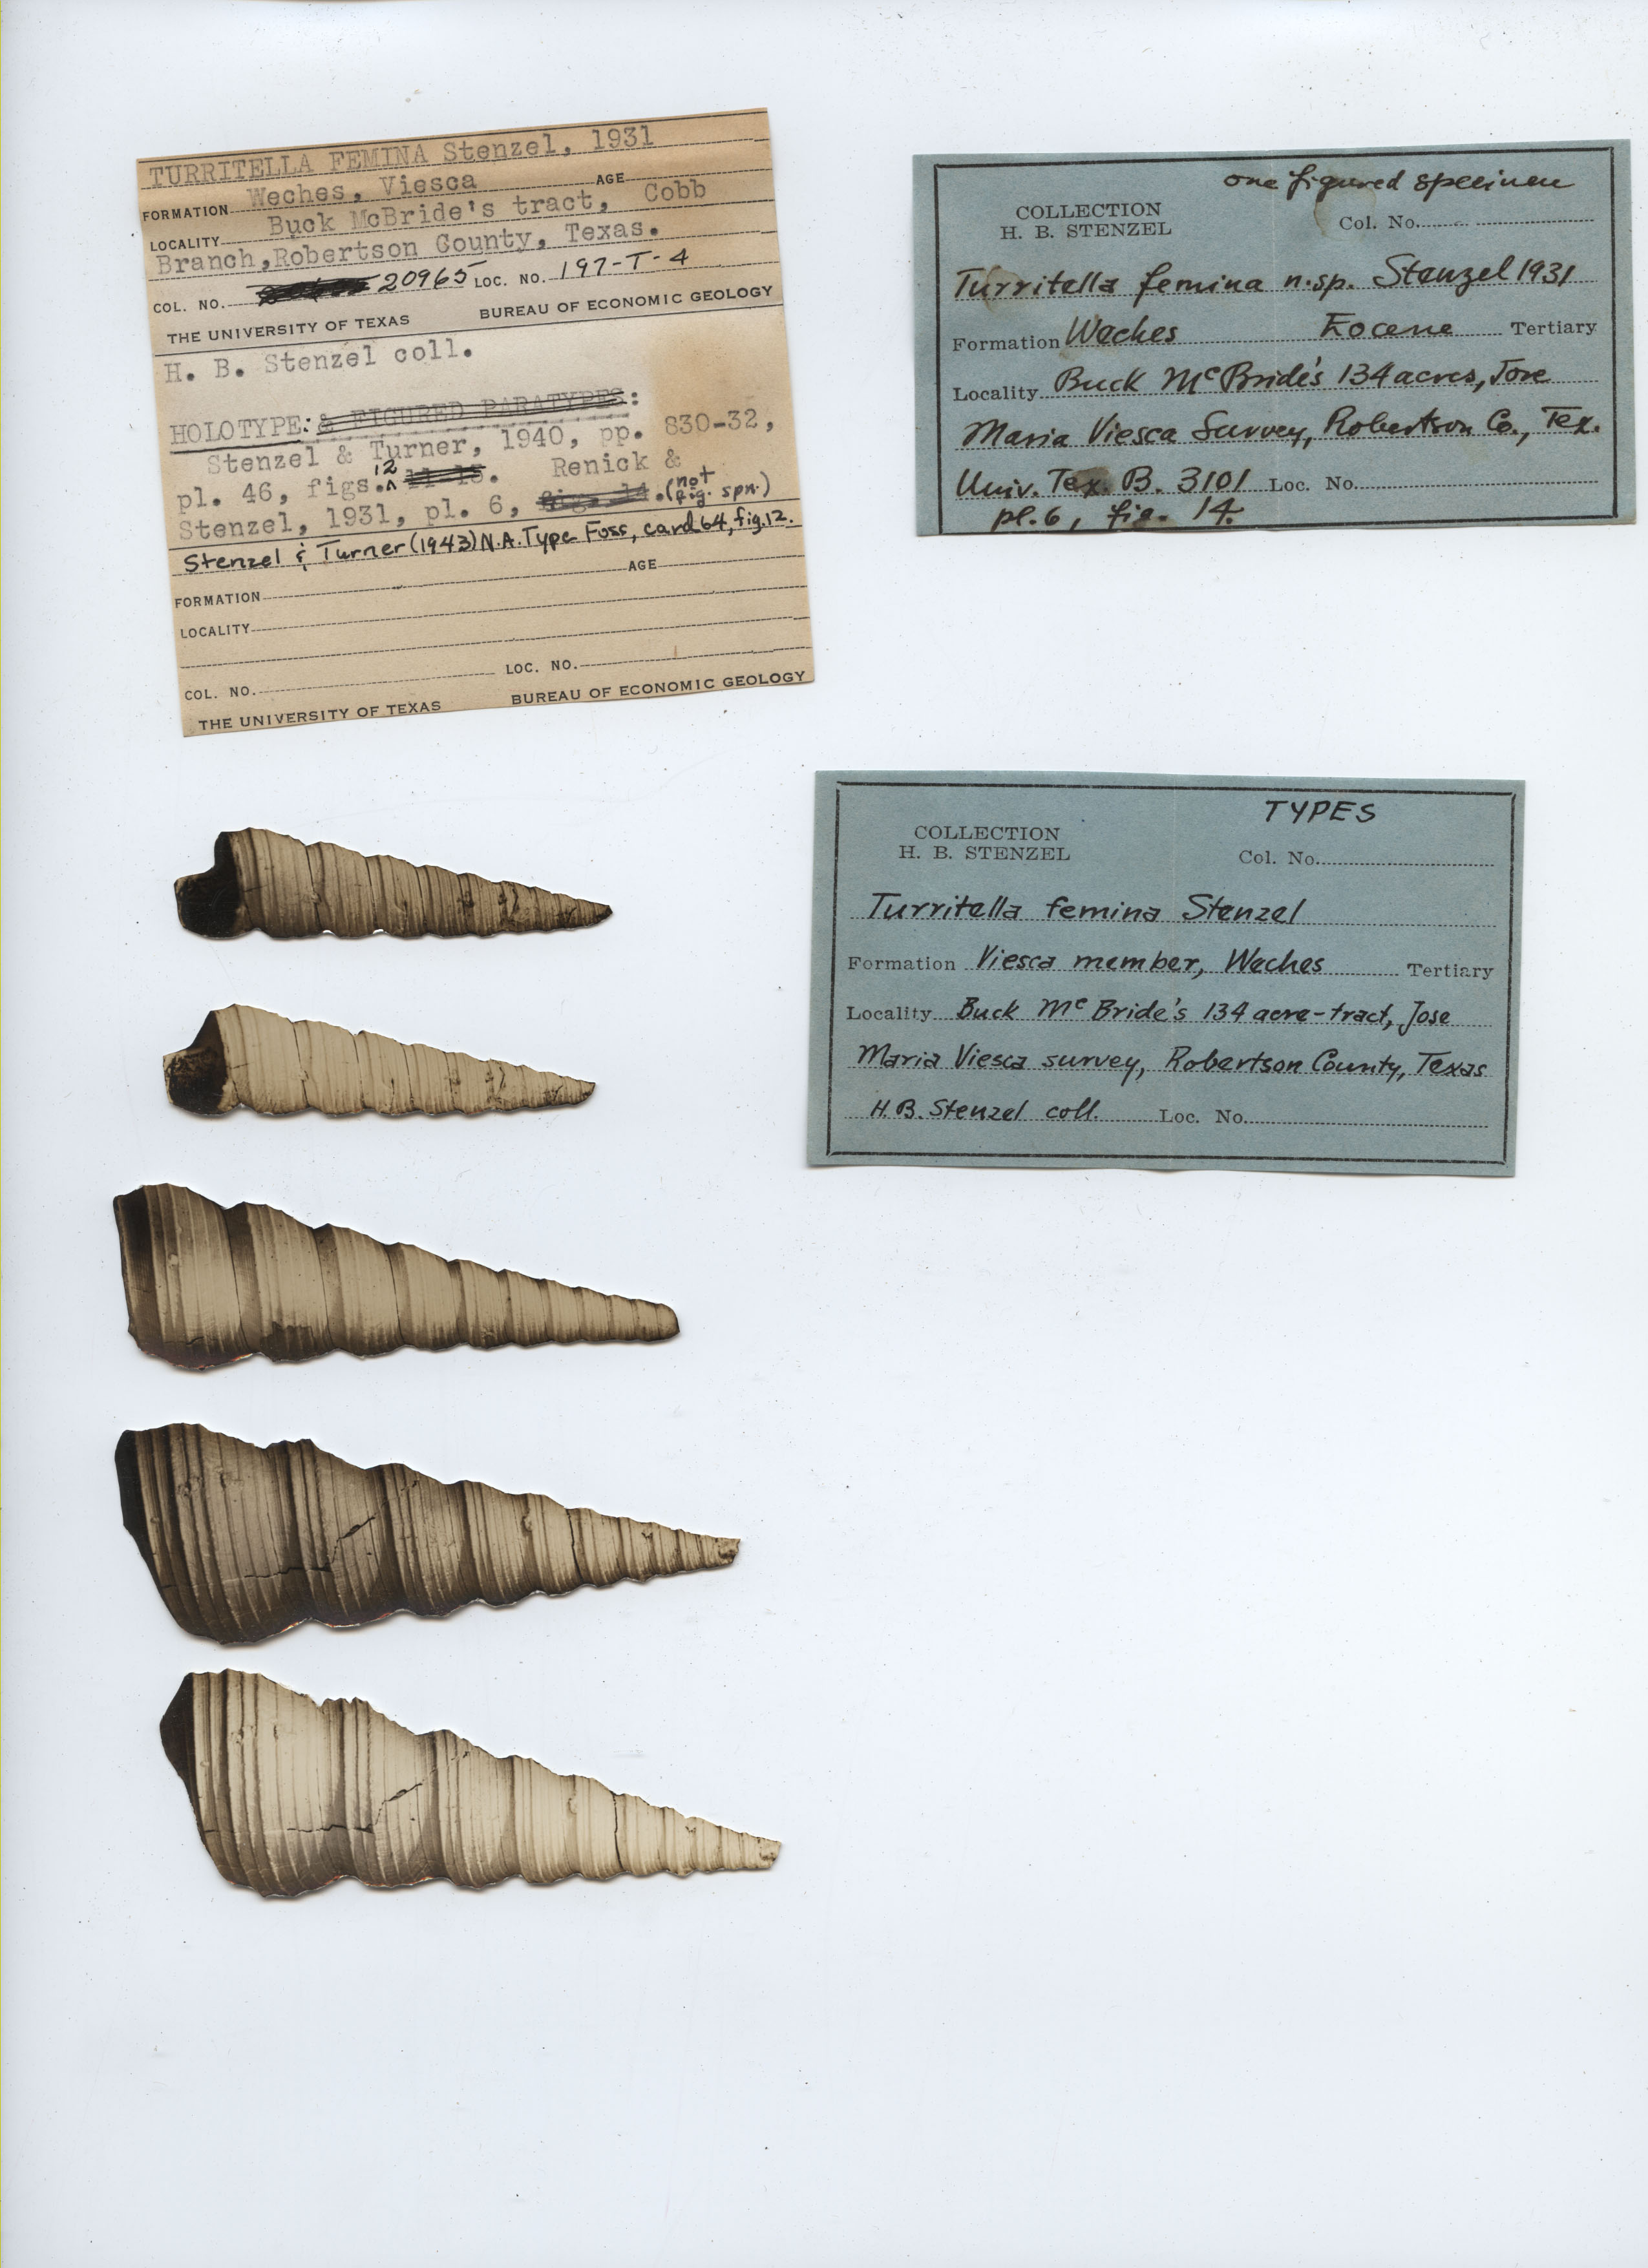 TURRITELLA FEMINA Stenzel, 1931
FORMATION Weches, Viesca AGE
LOCALITY Buck McBride's tract, Cobb
Branch, Robertson County, Texas.
COL. NO. 20965 LOC. NO. 197-T-4
THE UNIVERSITY OF TEXAS BUREAU OF ECONOMIC GEOLOGY
H. B. Stenzel coll.
HOLOTYPE: & FIGURED PARATYPES:
Stenzel & Turner, 1940, pp. 830-32,
pl. 46, figs. 12 11-15. Renick &
Stenzel, 1931, pl. 6, fig. 14. (not fig. spn.)
Stenzel & Turner (1943) N.A. Type Foss, card 64, fig. 12.
AGE
FORMATION
LOCALITY
COL. NO. LOC. NO.
THE UNIVERSITY OF TEXAS BUREAU OF ECONOMIC GEOLOGY
one figured specimen
COLLECTION
H. B. STENZEL
Col. No.
Turritella femina n.sp. Stenzel 1931
Formation Weches Eocene Tertiary
Locality Buck McBride's 134 acres, Jose
Maria Viesca Survey, Robertson Co., Tex.
Univ. Tex. B. 3101 Loc. No.
pl. 6, fig. 14.
TYPES
COLLECTION
H. B. STENZEL
Col. No.
Turritella femina Stenzel
Formation Viesca member, Weches Tertiary
Locality Buck McBride's 134 acre-tract, Jose
Maria Viesca survey, Robertson County, Texas
H. B. Stenzel coll. Loc. No.